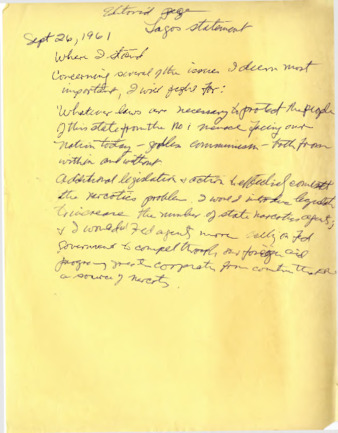 Editorial page
Lagos statement
Sept 26, 1961
Where I stand
Concerning several of the issues I deem most
important, I will fight for:
Whatever laws are necessary to protect the people
of this state from the No 1 menace facing our
nation today - godless communism - both from
within and without
Additional legislation & action to effectively combat
the narcotics problem. I would introduce legislation
to increase the number of state narcotics agents,
& I would Fed agents more call on Fed
Government to compel through our foreign aid
program more cooperation from countries that are
a source of narcotics.